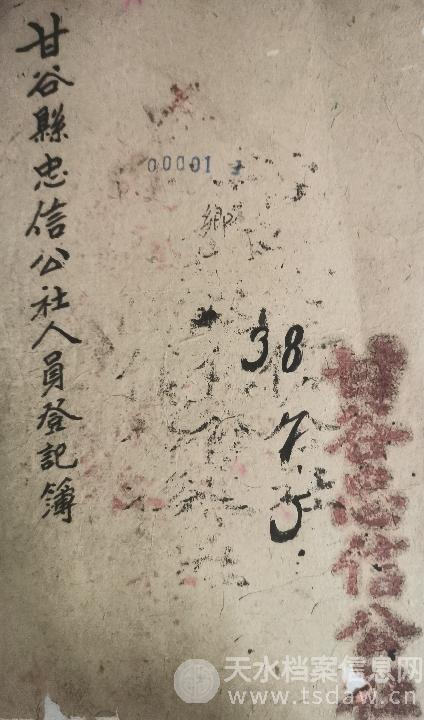 甘谷縣忠信公社人員登記簿
00001
鄉
38
7
5
甘谷忠信公
天水档案信息网
www.tsdaw.cn